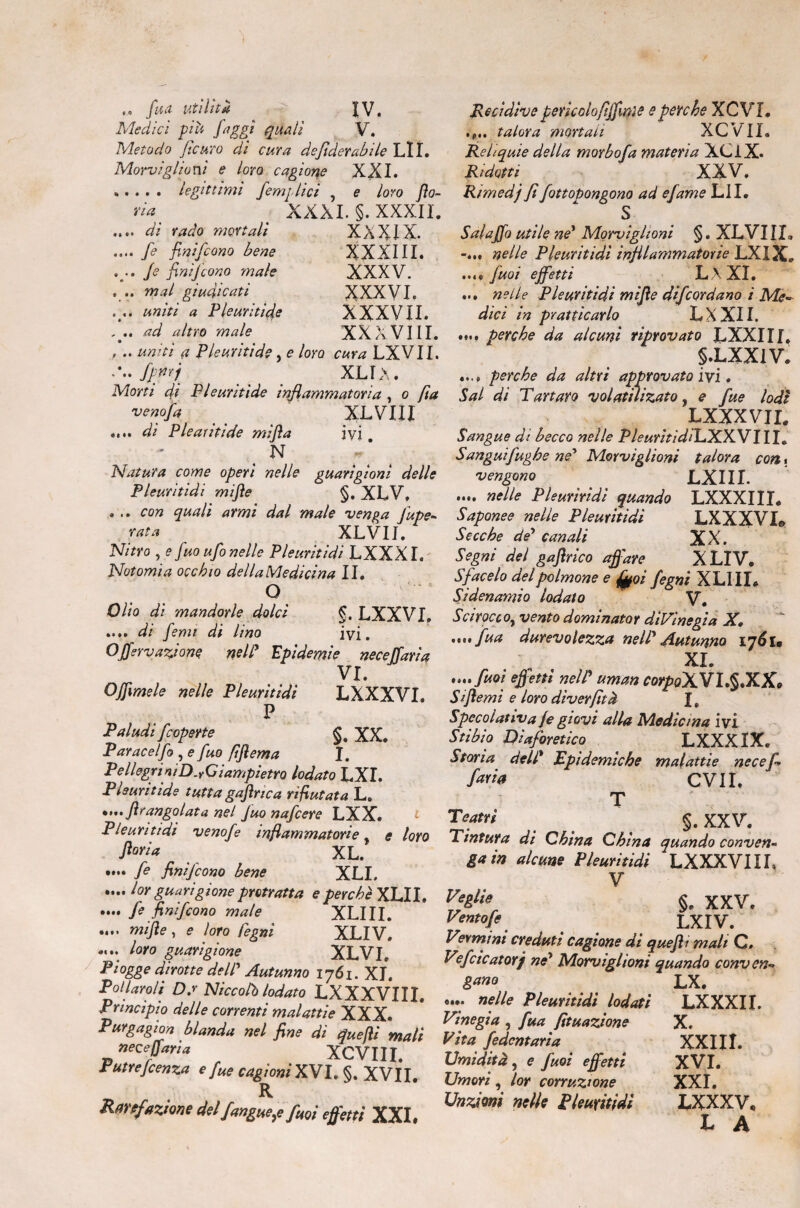 .. ſua utilità IV.
Medici più ſaggi quali V.
Metodo ſicuro di cura deſiderabile LII.
Morviglioni e loro cagione XXI.
..... legittimi ſemplici , e loro ſto-
ria XXXI. §. XXXII.
.... di rado mortali XXXIX.
.... ſe finiſcono bene XXXIII.
... ſe finiſcono male XXXV.
... mal giudicati XXXVI.
... uniti a Pleuritide XXXVII.
... ad altro male XXXVIII.
... uniti a Pleuritide , e loro cura LXVII.
... ſpurj XLIX.
Morti di Pleuritide inflammatoria , o ſia
venoſa XLVIII
.... di Plearitide miſta ivi .
N
Natura come operi nelle guarigioni delle
Pleuritidi miſte §. XLV.
... con quali armi dal male venga ſupe-
rata XLVII.
Nitro , e ſuo uſo nelle Pleuritidi LXXXI.
Notomia occhio della Medicina II.
O
Olio di mandorle dolci §. LXXVI.
.... di ſemi di lino ivi.
Oſſervazione nell' Epidemie neceſſaria
VI.
Oſſimele nelle Pleuritidi LXXXVI.
P
Paludi ſcoperte §. XX.
Paracelſo , e ſuo ſiſtema I.
Pellegrini D.r Giampietro lodato LXI.
Pleuritide tutta gaſtrica rifiutata L.
.... ſtrangolata nel ſuo naſcere LXX.
Pleuritidi venoſe inflammatorie , e loro
ſtoria XL.
.... ſe finiſcono bene XLI.
.... lor guarigione protratta e perchè XLII.
.... ſe finiſcono male XLIII.
.... miſte , e loro ſegni XLIV.
.... loro guarigione XLVI.
Piogge dirotte dell' Autunno 1761. XI.
Pollaroli D.r Niccolò lodato LXXXVIII.
Principio delle correnti malattie XXX.
Purgagion blanda nel fine di queſti mali
neceſſaria XCVIII.
Putreſcenza e ſue cagioni XVI. §. XVII.
R
Rarefazione del ſangue,e ſuoi effetti XXI.
Recidive pericoloſiſſime e perche XCVI.
.... talora mortali XCVII.
Reliquie della morboſa materia XCIX.
Ridotti XXV.
Rimedj ſi ſottopongono ad eſame LII.
S
Salaſſo utile ne' Morviglioni §. XLVIII.
.... nelle Pleuritidi infllammatorie LXIX.
.... ſuoi effetti LXXI.
... nelle Pleuritidi miſte diſcordano i Me-
dici in pratticarlo LXXII.
.... perche da alcuni riprovato LXXIII.
§.LXXIV.
.... perche da altri approvato ivi .
Sal di Tartaro volatilizato , e ſue lodi
LXXXVII.
Sangue di becco nelle PleuritidiLXXVIII.
Sanguiſughe ne' Morviglioni talora con-
vengono LXIII.
.... nelle Pleuriridi quando LXXXIII.
Saponee nelle Pleuritidi LXXXVI.
Secche de' canali XX.
Segni del gaſtrico affare XLIV.
Sfacelo del polmone e ſuoi ſegni XLIII.
Sidenamio lodato V.
Scirocco, vento dominator di Vinegia X.
.... ſua durevolezza nell' Autunno 1761.
XI.
.... ſuoi effetti nell' uman corpoXVI.§.XX.
Siſtemi e loro diverſità I.
Specolativa ſe giovi alla Medicina ivi
Stibio Diaforetico LXXXIX.
Storia dell' Epidemiche malattie neceſ-
ſaria CVII.
T
Teatri §. XXV.
Tintura di China China quando conven-
ga in alcune Pleuritidi LXXXVIII.
V
Veglie §. XXV.
Ventoſe LXIV.
Vermini creduti cagione di queſti mali C.
Veſcicatorj ne' Morviglioni quando conven-
gano LX.
.... nelle Pleuritidi lodati LXXXII.
Vinegia , ſua ſituazione X.
Vita ſedentaria XXIII.
Umidità , e ſuoi effetti XVI.
Umori , lor corruzione XXI.
Unzioni nelle Pleuritidi LXXXV.
L A